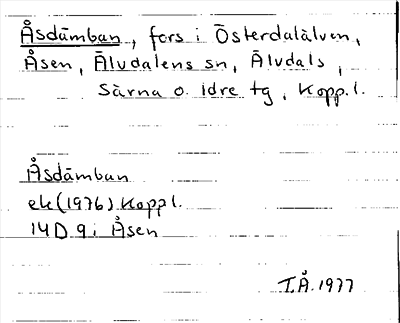 Åsdämban, fors i Österdalälven,
Åsen, Älvdalens sn, Älvdals,
Särna o. Idre tg, Kopp. l.
Åsdämban
ek (1976) Kopp l.
14D 9i Åsen
T.Å. 1977